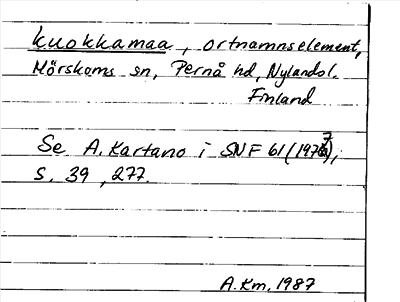 kuokkamaa, ortnamnselement,
Mörskoms sn, Pernå hd, Nylands l.
Finland
Se A. Kartano i SNF 61 (1977),
s. 39, 277.
A.Km. 1987